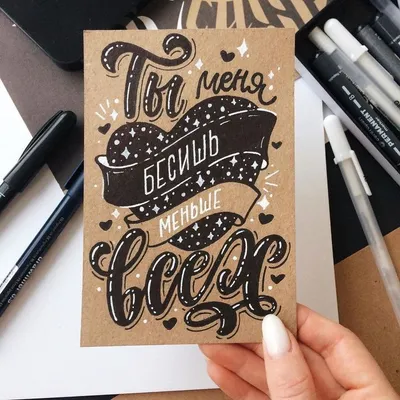 Ты меня
БЕСИШЬ
МЕНЬШЕ
всех
PERMANENT